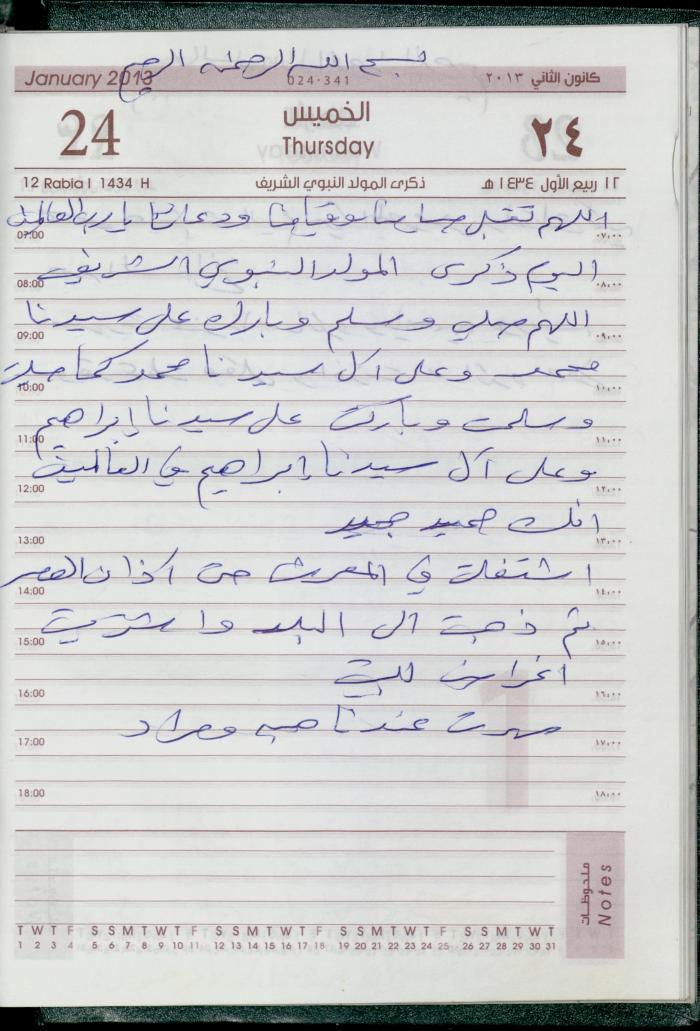 بسم الله الرحمن الرحيم
January 2013 024-341 كانون الثاني ٢٠١٣
24 الخميس ٢٤
Thursday
12 Rabia I 1434 H ذكرى المولد النبوي الشريف ١٢ ربيع الأول ١٤٣٤ هـ
اللهم تقبل صيامنا وقيامنا ودعائنا يا رب العالمين
07:00 ٠٧:٠٠
اليوم ذكرى المولد النبوي الشريف
08:00 ٠٨:٠٠
اللهم صلي وسلم وبارك على سيدنا
09:00 ٠٩:٠٠
محمد وعلى آل سيدنا محمد كما صليت
10:00 ١٠:٠٠
وسلمت وباركت على سيدنا إبراهيم
11:00 ١١:٠٠
وعلى آل سيدنا إبراهيم في العالمين
12:00 ١٢:٠٠
انك حميد مجيد
13:00 ١٣:٠٠
اشتغلت في المعرش حتى اذان العصر
14:00 ١٤:٠٠
ثم ذهبت الى البلد واشتريت
15:00 ١٥:٠٠
اغراض للبيت
16:00 ١٦:٠٠
سهرت عندنا ومراد
17:00 ١٧:٠٠
18:00 ١٨:٠٠
ملحوظات
Notes
T W T F S S M T W T F S S M T W T F S S M T W T F S S M T W T
1 2 3 4 5 6 7 8 9 10 11 12 13 14 15 16 17 18 19 20 21 22 23 24 25 26 27 28 29 30 31